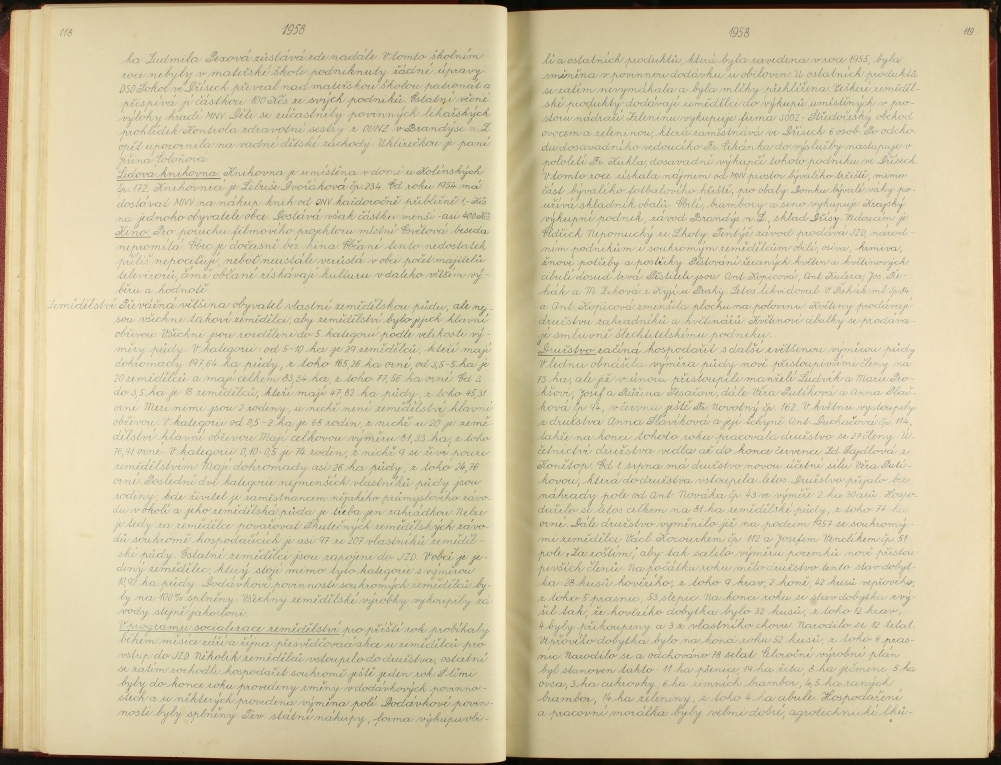 118
1958
ka Ludmila Pexová zůstává zde nadále. V tomto školním
roce nebyly v mateřské škole podniknuty žádné úpravy.
DSO Sokol ve Dřísech převzal nad mateřskou školou patronát a
přispívá jí částkou 100 Kčs ze svých podniků. Ostatní věcné
výlohy hradí MNV. Děti se zúčastnily povinných lékařských
prohlídek. Kontrola zdravotní sestry z OÚNZ v Brandýse n. L.
opět upozornila na vadné dětské záchody. Uklizečkou je paní
Lidová knihovna. Knihovna je umístěna v domě u
čp. 172. Knihovnicí je Libuše Dvořáková čp. 234. Od roku 1954 má
dostávat MNV na nákup knih od ONV každoročně přibližně 1,- Kčs
na jednoho obyvatele obce. Dostává však částku menší - asi 400 Kčs
Kino. Pro poruchu filmového projektoru místní Osvětová beseda
nepromítá. Obec je dočasně bez kina. Občané tento nedostatek
příliš nepociťují, neboť neustále vzrůstá v obci počet majitelů
televizorů, čímž občané získávají kulturu v daleko větším vý-
běru a hodnotě.
Zemědělství Převážná většina obyvatel vlastní zemědělskou půdu, ale nej-
sou všichni takoví zemědělci, aby zemědělství bylo jejich hlavní
obživou. Všichni jsou rozděleni do 5 kategorií podle velikosti vý-
měry půdy. V kategorii od 5-10 ha je 29 zemědělců, kteří mají
dohromady 197,64 ha půdy, z toho 165,26 ha orné, od 3,5-5 ha je
20 zemědělců a mají celkem 83,34 ha, z toho 77,56 ha orné. Od 2
do 3,5 ha je 18 zemědělců, kteří mají 47,83 ha půdy, z toho 45,31
orné. Mezi nimi jsou 2 rodiny, u nichž není zemědělství hlavní
obživou. V kategorii od 0,5-2 ha je 68 rodin, z nichž u 20 je země-
dělství hlavní obživou. Mají celkovou výměru 81,33 ha, z toho
76,41 orné. V kategorii 0,10-0,5 je 74 rodin, z nichž 9 se živí pouze
zemědělstvím. Mají dohromady asi 26 ha půdy, z toho 24,76
orné. Poslední dvě kategorie nejmenších vlastníků půdy jsou
rodiny, kde živitel je zaměstnancem nějakého průmyslového závo-
du v okolí a jeho zemědělská půda je třeba jen zahrádkou. Nelze
je tedy za zemědělce považovat. Skutečných zemědělských závo-
dů soukromě hospodařících je asi 97 ze 207 vlastníků zeměděl-
ské půdy. Ostatní zemědělci jsou zapojeni do JZD. V obci je je-
diný zemědělec, který stojí mimo tyto kategorie s výměrou
ha půdy. Dodávkové povinnosti soukromých zemědělců by-
ly na 100% splněny. Všechny zemědělské výrobky vykoupily zá-
vody stejné jako loni.
V programu socializace zemědělství pro příští rok probíhaly
během měsíce září a října přesvědčovací akce u zemědělců pro
vstup do JZD. Několik zemědělců vstoupilo do družstva, ostatní
se zatím rozhodli hospodařit soukromě ještě jeden rok. S těmi
byly do konce roku provedeny změny v dodávkových povinno-
stech a u některých provedena výměna polí. Dodávkové povin-
nosti byly splněny. Tzv. státní nákupy, forma výkupu obi-
1958
119
lí a ostatních produktů, která byla zavedena v roce 1955, byla
směněna v povinnou dodávku u obilovin. U ostatních produktů
se zatím nevymáhala a byla mlčky přehlížena. Veškeré zeměděl-
ské produkty dodávají zemědělci do výkupů umístěných v pro-
storu nádraží. Zeleninu vykupuje firma SOOZ - Středočeský obchod
ovocem a zeleninou, která zaměstnává ve Dřísech 6 osob. Po odcho-
du dosavadního vedoucího Fr. Čekánka do výslužby nastupuje v
pololetí Fr. Kukla, dosavadní výkupčí tohoto podniku ve Dřísech.
V tomto roce získala nájmem od MNV prostor bývalého tržiště, mimo
část bývalého fotbalového hřiště, pro obaly. Domku bývalé váhy po-
užívá skladník obalů. Obilí, brambory a seno vykupuje Krajský
výkupní podnik, závod Brandýs n. L., sklad Dřísy. Vedoucím je
Oldřich Nepomucký ze Lhoty. Tentýž závod prodává JZD, národ-
ním podnikům i soukromým zemědělcům obilí, osiva, krmiva,
žňové potřeby a postřiky. Pěstování řezaných květin a květinových
cibulí dosud trvá. Pěstiteli jsou Ant. Kopicová, Ant. Kučera, Jos. Ře-
hák a M. Zeková z Kyjí u Prahy. Letos likvidoval V. Řehák ml. čp. 84
a Ant. Kopicová zmenšila plochu na polovinu. Květiny prodávají
družstvu zahradníků a květinářů. Květinové cibulky se prodáva-
jí smluvně Šlechtitelskému podniku.
Družstvo začíná hospodařit s další zvětšenou výměrou půdy.
V lednu obnášela výměra půdy nově přistoupivšími členy na
73 ha, ale již v únoru přistoupili manželé Ludvík a Marie Pro-
kšovi, Josef a Růžena Tesařovi, dále Věra Rutíková a Anna Hlav-
ková čp. 94, v červnu ještě Fr. Novotný čp. 162. V květnu vystoupily
z družstva Anna Hlavíková a její tchyně Ant. Suchařová čp. 114,
takže na konci tohoto roku pracovala družstva se 27 členy. Ú-
četnictví družstva vedla až do konce července Zd. Hajdlová z
Konětop. Od 1. srpna má družstvo novou účetní sílu Věru Rutí-
kovou, která do družstva vstoupila letos. Družstvo přijalo bez
náhrady pole od Ant. Nováka čp. 43 ve výměře 2 ha 30 arů. Hospo-
dařilo se letos celkem na 81 ha zemědělské půdy, z toho 77 ha
orné. Dále družstvo vyměnilo již na podzim 1957 se soukromý-
mi zemědělci Václ. Kocourkem čp. 112 a Josefem Vendlíkem čp. 51
pole „Za roštím", aby tak scelilo výměru pozemků nově přistou-
pivších členů. Na počátku roku mělo družstvo tento stav dobyt-
ka: 28 kusů hovězího, z toho 9 krav, 2 koně, 42 kusů vepřového,
z toho 5 prasnic, 53 slepic. Na konci roku se stav dobytka zvý-
šil tak, že hovězího dobytka bylo 32 kusů, z toho 12 krav,
4 byly přikoupeny a 3 z vlastního chovu. Narodilo se 12 telat.
Vepřového dobytka bylo na konci roku 52 kusů, z toho 6 pras-
nic. Narodilo se a odchováno 78 selat. Celoroční výrobní plán
byl stanoven takto: 11 ha pšenice, 19 ha žita, 8 ha ječmene, 5 ha
ovsa, 3 ha cukrovky, 6 ha zemních brambor, 4,5 ha raných
brambor, 14 ha zeleniny, z toho 4 ha cibule. Hospodaření
a pracovní morálka byly velmi dobré, agrotechnické lhů-